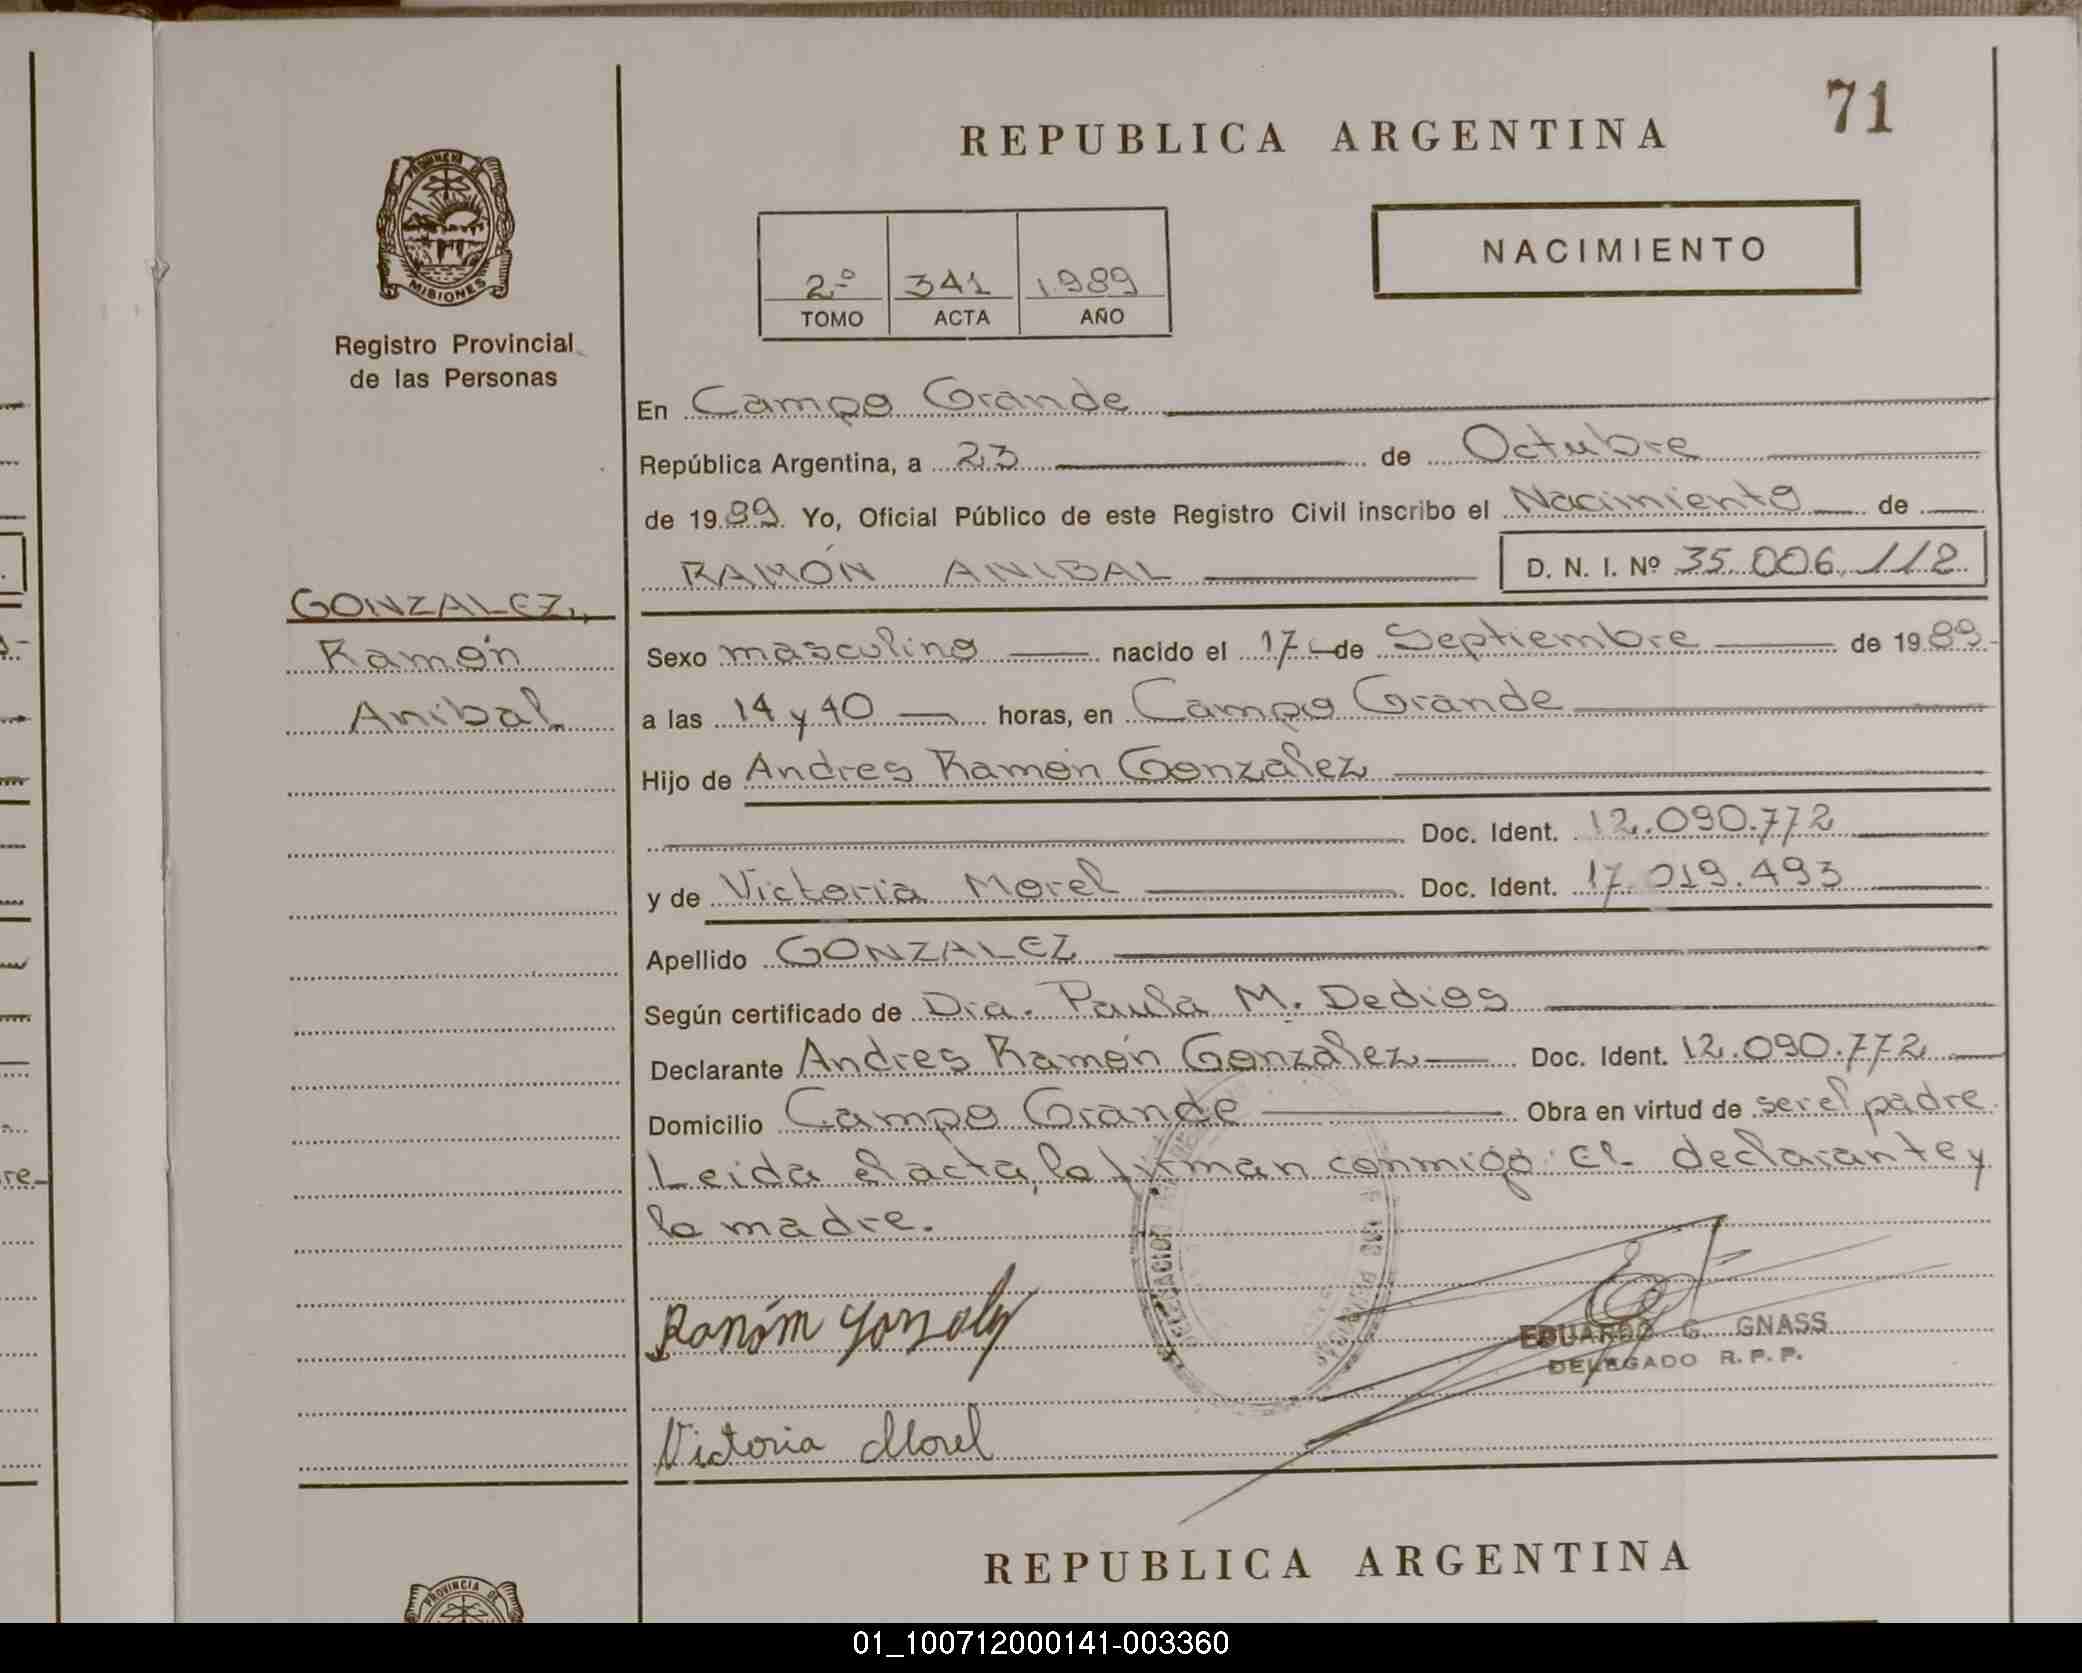 71
REPUBLICA ARGENTINA
NACIMIENTO
2º 341 1989
TOMO ACTA AÑO
PROVINCIA DE
MISIONES
Registro Provincial
de las Personas
En Campo Grande
República Argentina, a 23 de Octubre
de 1989 Yo, Oficial Público de este Registro Civil inscribo el Nacimiento de
RAMÓN ANIBAL D. N. I. Nº 35.006.112
GONZALEZ,
Ramón
Anibal
Sexo masculino nacido el 17 de Septiembre de 1989
a las 14 y 40 horas, en Campo Grande
Hijo de Andres Ramón González
Doc. Ident. 12.090.772
y de Victoria Morel Doc. Ident. 17.019.493
Apellido GONZALEZ
Según certificado de Dra. Paula M. Dedios
Declarante Andres Ramón González Doc. Ident. 12.090.772
Domicilio Campo Grande Obra en virtud de ser el padre.
Leida el acta, la firman conmigo: el declarante y
la madre.
Ramón Gonzalez
EDUARDO G. GNASS
DELEGADO R. P. P.
Victoria Morel
REPUBLICA ARGENTINA
PROVINCIA DE
01_100712000141-003360